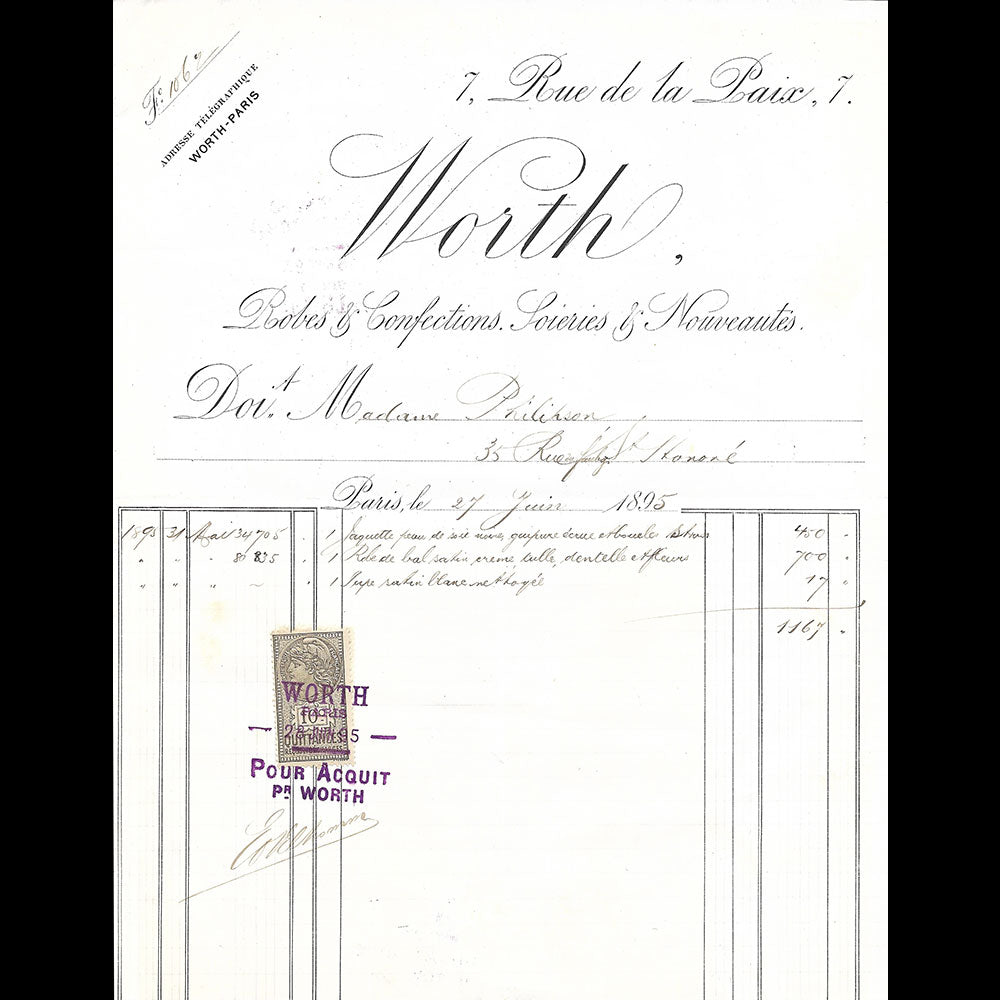 Fº 106
ADRESSE TÉLÉGRAPHIQUE
WORTH-PARIS
7, Rue de la Paix, 7.
Worth,
Robes & Confections. Soieries & Nouveautés.
Doit Madame Philipson
35 Rue du faubg St Honoré
Paris, le 27 Juin 1895
1895 31 Mai 34705 1 Jaquette peau de soie noire, guipure écrue et boucles Strass 450
" " " 80835 1 Robe de bal satin crème tulle, dentelle et fleurs 700
" " " ~ 1 Jupe satin blanc nettoyée 17
1167
WORTH
PARIS
10c
28 JUIN 95
QUITTANCES
POUR ACQUIT
PR WORTH